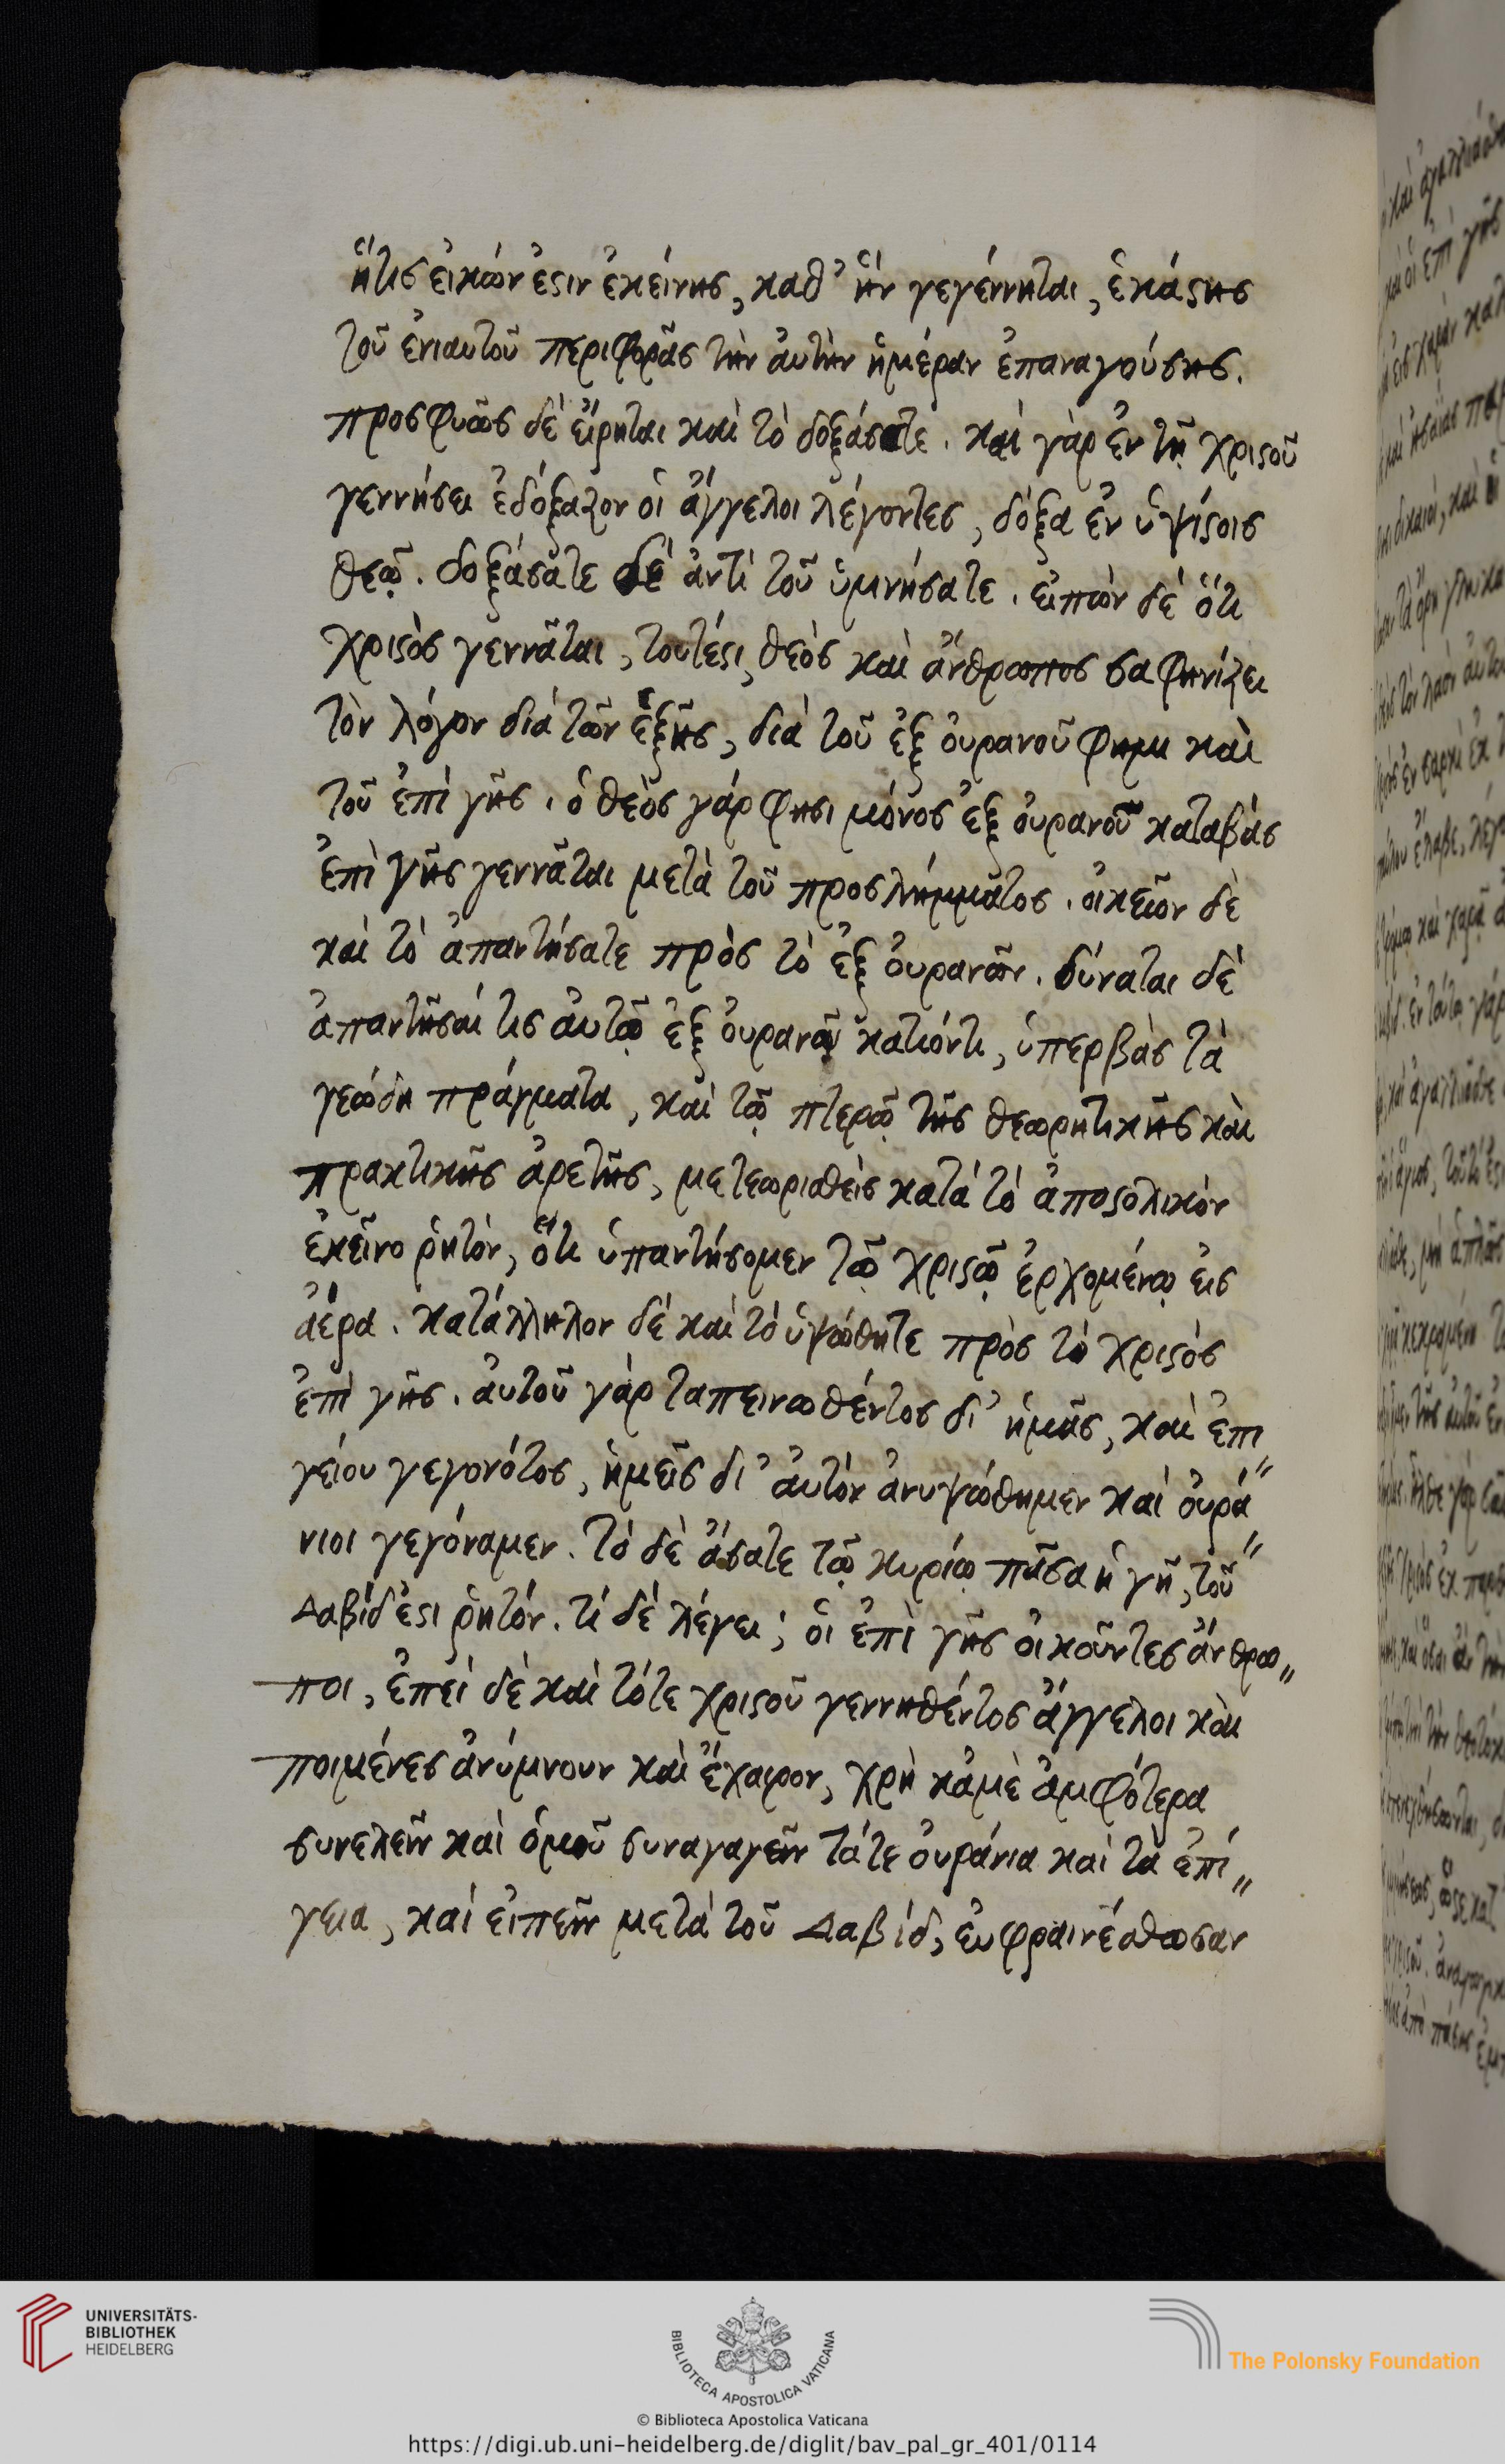 ἥτις εἰκών ἐστιν ἐκείνης, καθ' ἣν γεγέννηται, ἑκάστης
τοῦ ἐνιαυτοῦ περιφορᾶς τὴν ἀυτὴν ἡμέραν ἐπαναγούσης.
προσφυῶς δὲ εἴρηται καὶ τὸ δοξάσατε. καὶ γὰρ ἐν τῇ χριστοῦ
γεννήσει ἐδόξαζον οἱ ἄγγελοι λέγοντες, δόξα ἐν ὑψίστοις
θεῷ. δοξάσατε δὲ ἀντὶ τοῦ ὑμνήσατε. εἰπὼν δὲ ὅτι
χριστὸς γεννᾶται, τουτέστι, θεὸς καὶ ἄνθρωπος σαφηνίζει
τὸν λόγον διὰ τῶν ἑξῆς, διὰ τοῦ ἐξ οὐρανοῦ φημι καὶ
τοῦ ἐπὶ γῆς. ὁ θεὸς γάρ φησι μόνος ἐξ οὐρανοῦ καταβὰς
ἐπὶ γῆς γεννᾶται μετὰ τοῦ προσλήμματος. οἰκεῖον δὲ
καὶ τὸ ἀπαντήσατε πρὸς τὸ ἐξ οὐρανῶν. δύναται δὲ
ἀπαντῆσαί τις ἀυτῷ ἐξ οὐρανῶν κατιόντι, ὑπερβὰς τὰ
γεώδη πράγματα, καὶ τῷ πτερῷ τῆς θεωρητικῆς καὶ
πρακτικῆς ἀρετῆς, μετεωρισθεὶς κατὰ τὸ ἀποστολικὸν
ἐκεῖνο ῥητὸν, ὅτι ὑπαντήσομεν τῷ χριστῷ ἐρχομένῳ εἰς
ἀέρα. κατάλληλον δὲ καὶ τὸ ὑψώθητε πρὸς τὸ χριστὸς
ἐπὶ γῆς. ἀυτοῦ γὰρ ταπεινωθέντος δι' ἡμᾶς, καὶ ἐπι〃
γείου γεγονότος, ἡμεῖς δι' ἀυτὸν ἀνυψώθημεν καὶ οὐρά〃
νιοι γεγόναμεν. τὸ δὲ ἄσατε τῷ κυρίῳ πᾶσα ἡ γῆ, τοῦ
Δαβίδ ἐστι ῥητόν. τί δὲ λέγει; οἱ ἐπὶ γῆς οἰκοῦντες ἄνθρω〃
ποι, ἐπεὶ δὲ καὶ τότε χριστοῦ γεννηθέντος ἄγγελοι καὶ
ποιμένες ἀνύμνουν καὶ ἔχαιρον, χρὴ κἀμὲ ἀμφότερα
συνελεῖν καὶ ὁμοῦ συναγαγεῖν τάτε οὐράνια καὶ τὰ ἐπί〃
γεια, καὶ εἰπεῖν μετὰ τοῦ Δαβίδ, ἐυφραινέσθωσαν
UNIVERSITÄTS-
BIBLIOTHEK
HEIDELBERG
BIBLIOTECA APOSTOLICA VATICANA
The Polonsky Foundation
© Biblioteca Apostolica Vaticana
https://digi.ub.uni-heidelberg.de/diglit/bav_pal_gr_401/0114